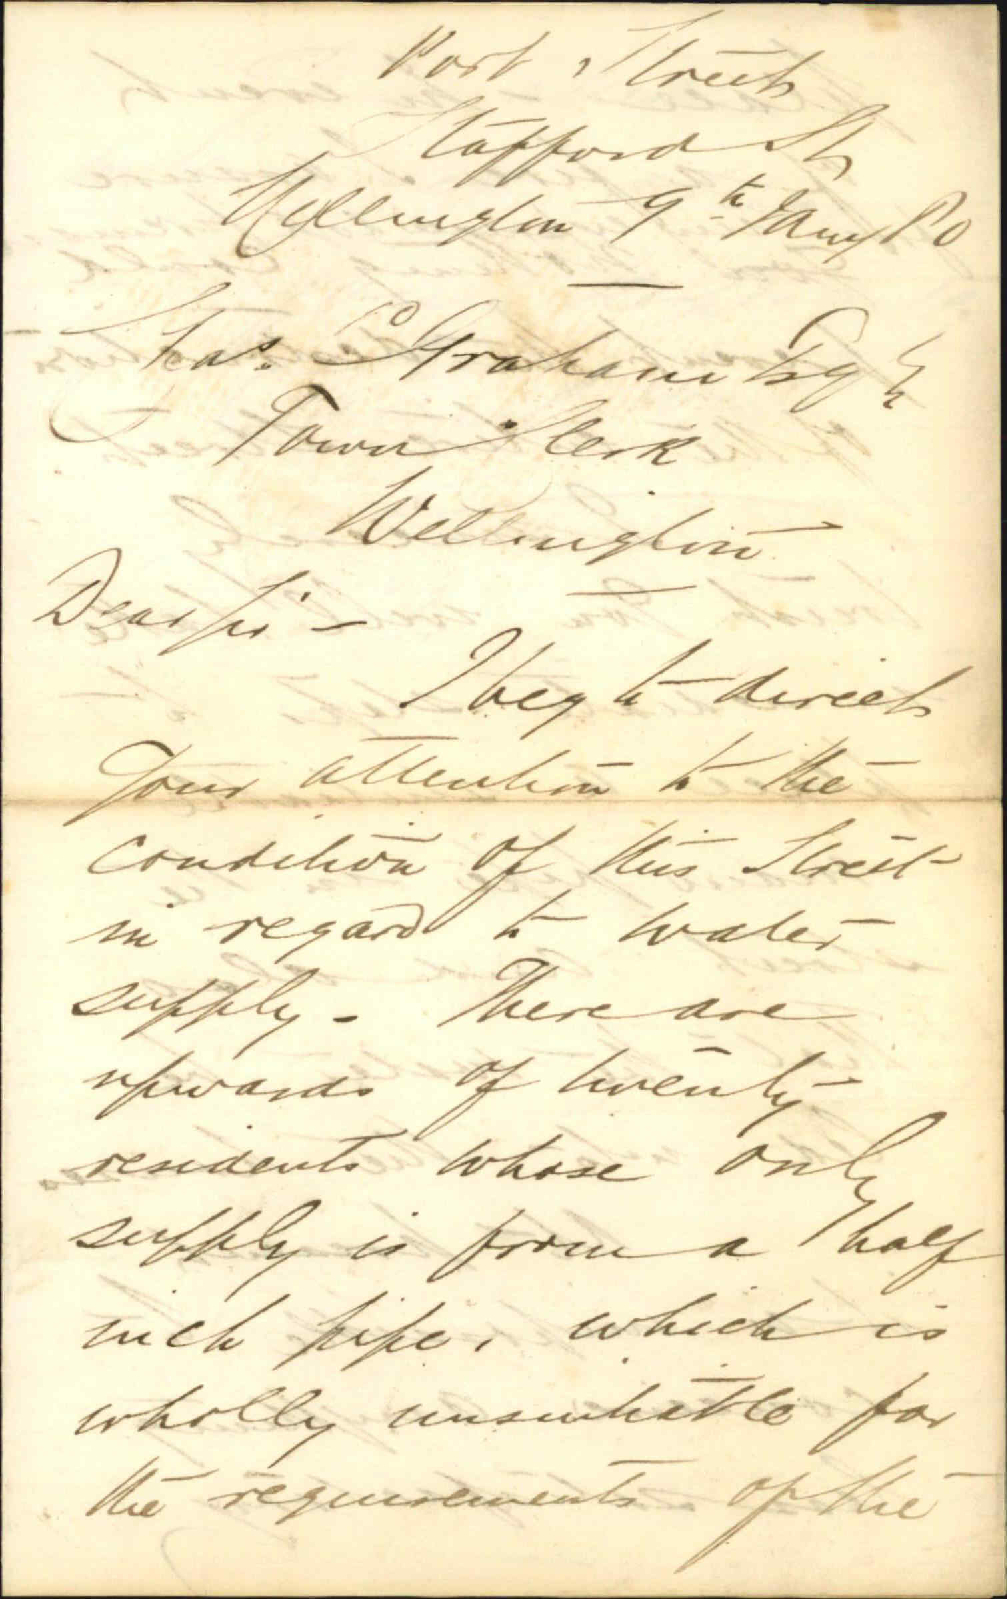 Port Street
Stafford St
Wellington 9th Jany 80
Chas. C Graham Esq
Town Clerk
Wellington
Dear Sir -
I beg to direct
your attention to the
condition of this Street
in regard to water
supply - There are
upwards of twenty
residents whose only
supply is from a half
inch pipe, which is
wholly unsuitable for
the requirements of the